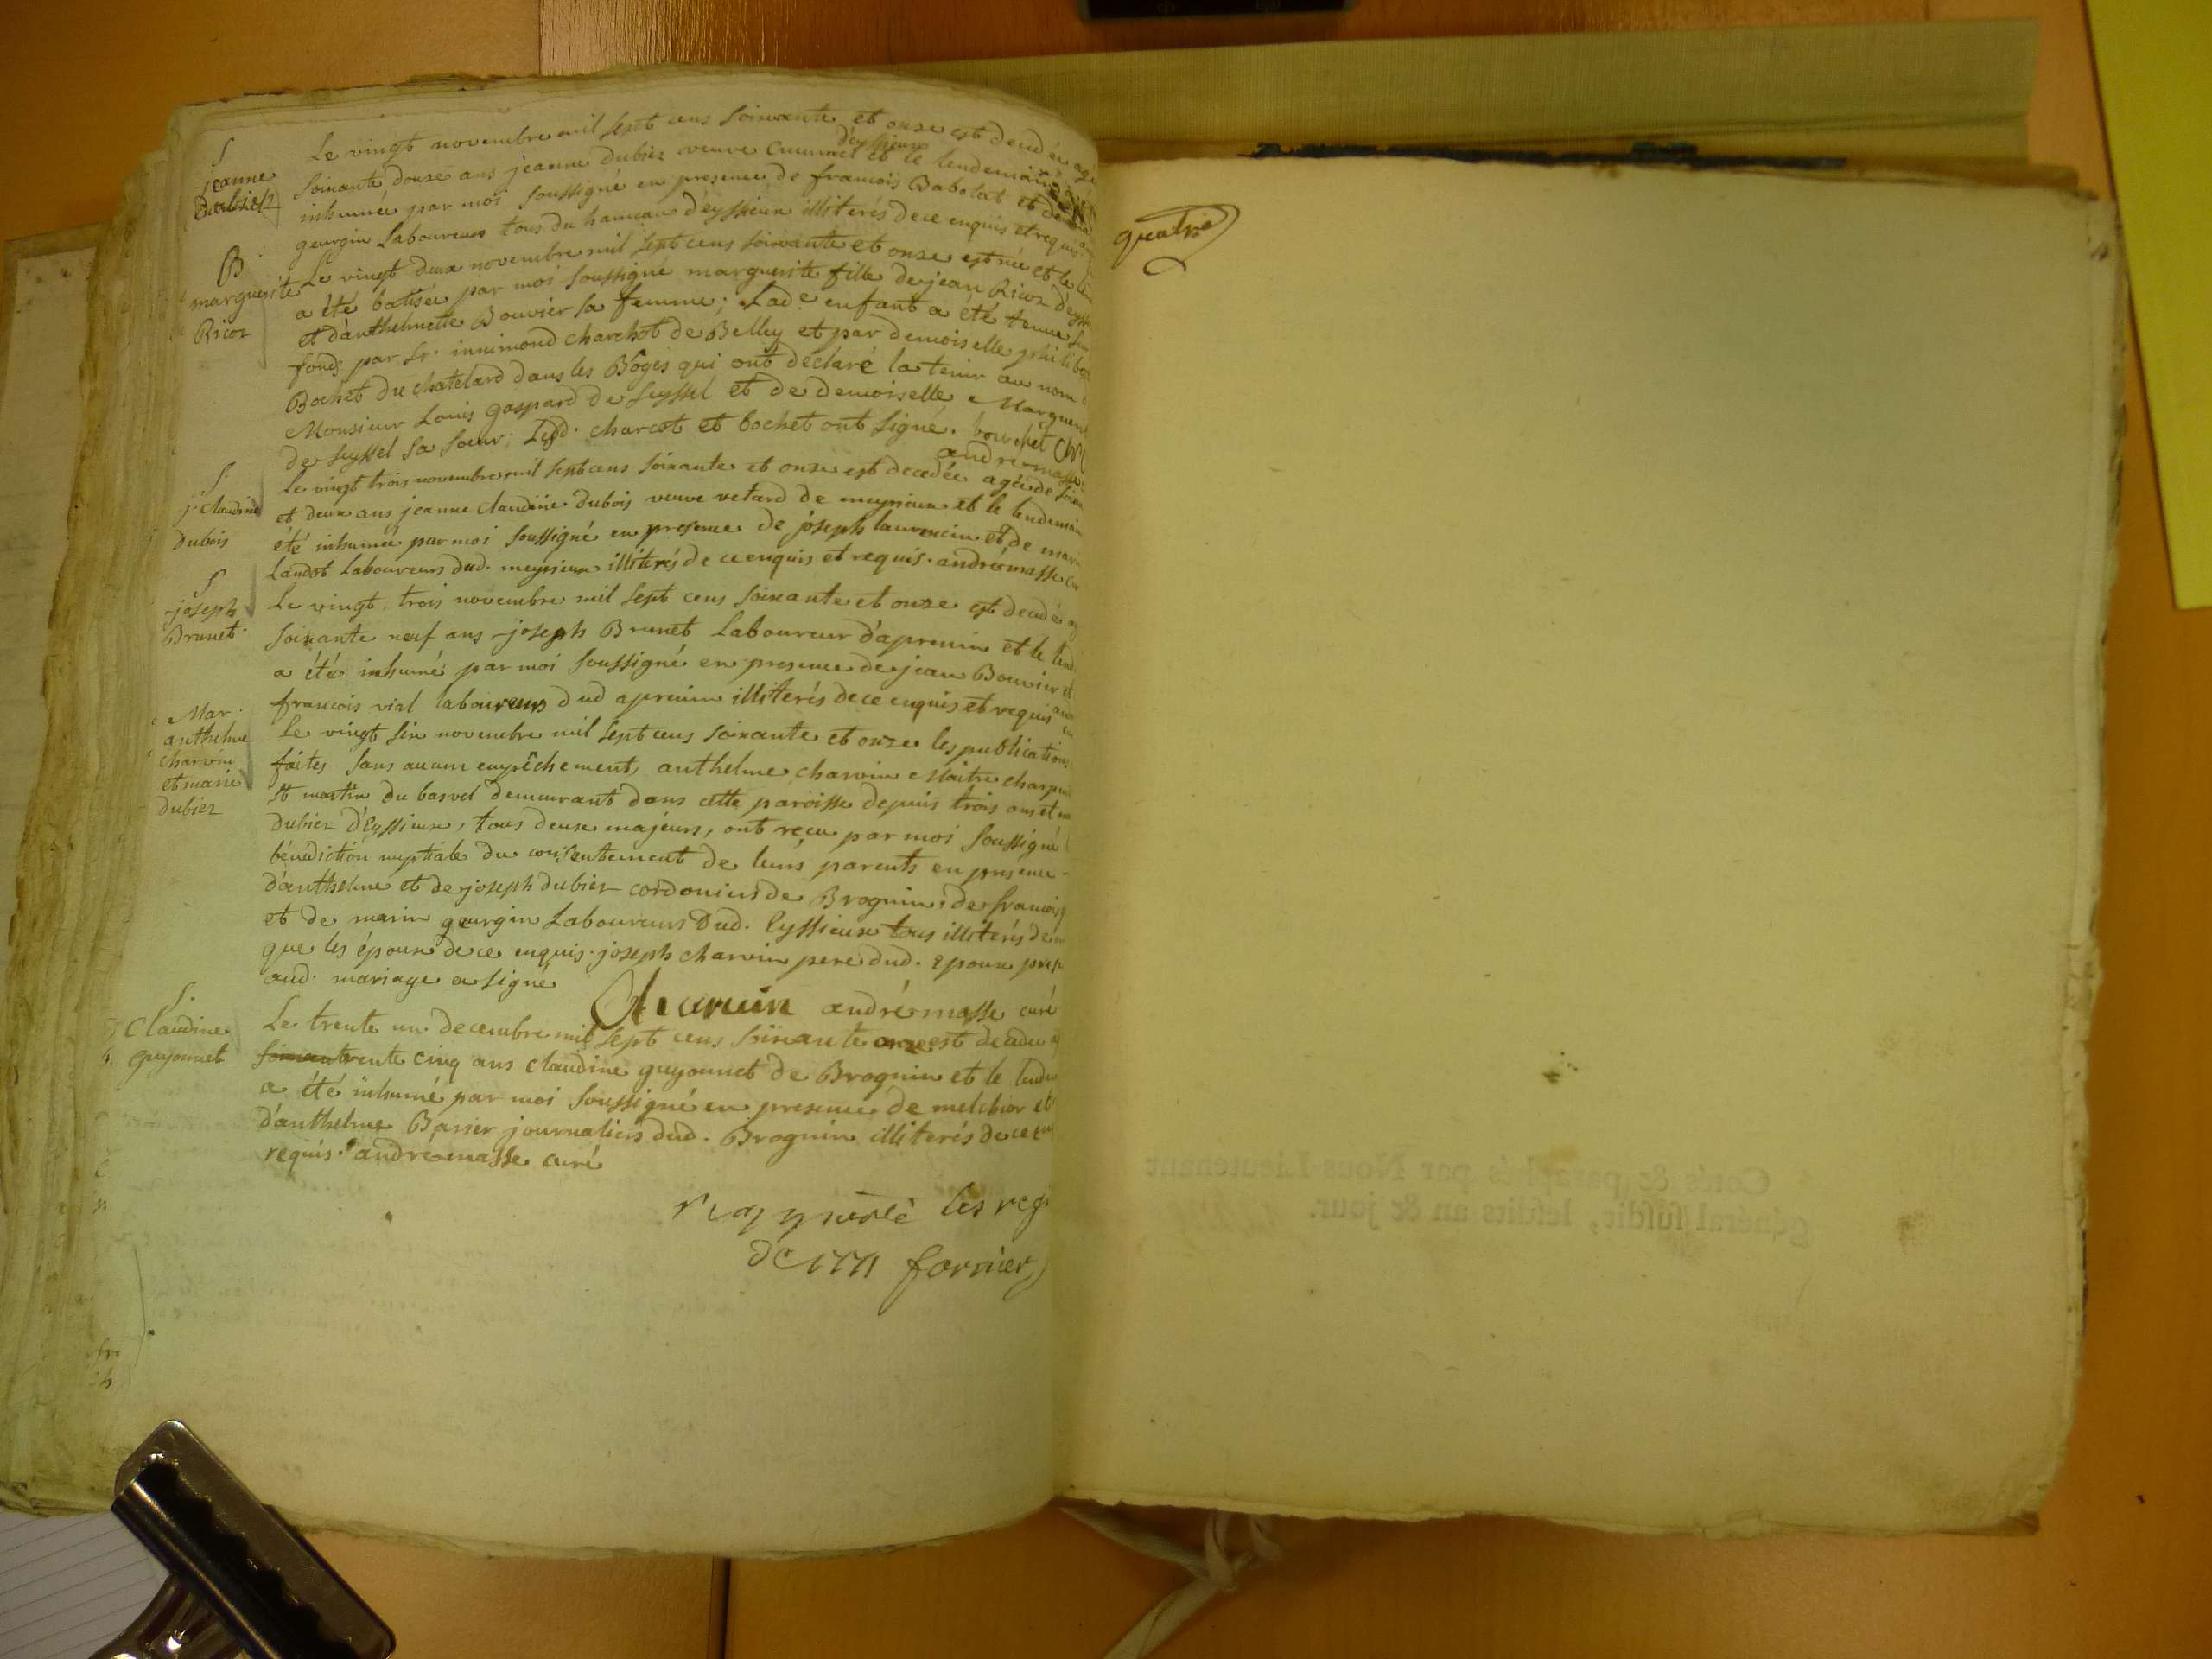 S
jeanne
Dubiez
Le vingt novembre mil sept cens soixante et onze est decedée agé
d'eyssieux
soixante douze ans jeanne dubiez veuve et le lendemain
inhumée par moi soussigné en presence de francois Babolat et de
geurgin laboureurs tous du hameau d'eyssieux illiterés de ce enquis et requis
B
marguerite
Ricoz
Le vingt deux novembre mil sept cens soixante et onze est née et le
a été batisée par moi soussigné marguerite fille de jean Ricoz d'eyss
et d'anthelmette Bouvier sa femme; Lad^e enfant a été tenue sur
fonds par sr. innimond charchot de Belley et par demoiselle philiber
Bochet du chatelard dans les Bôges qui ont déclaré la tenir au nom d
Monsieur Louis gaspard de seyssel et de demoiselle Marguerit
de seyssel sa soeur; Lesd. charcot et bochet ont signé. bouchet
andré masse
S.
j. claudine
dubois
Le vingt trois novembre mil sept cens soixante et onze est decedée agée de soixan
et deux ans jeanne claudine dubois veuve vetard de meyrieux et le lendemain
été inhumée par moi soussigné en presence de joseph laurencin et de marin
Landot laboureurs dud. meyrieux illiterés de ce enquis et requis. andré masse cur
S
joseph
Brunet.
Le vingt trois novembre mil sept cens soixante et onze est decedé ag
soixante neuf ans joseph Brunet Laboureur d'apremin et le lend
a été inhumé par moi soussigné en presence de jean Bouvier et
francois vial laboureurs dud apremin illiterés de ce enquis et requis
Mar.
anthelme
charvin
et marie
dubiez
Le vingt six novembre mil sept cens soixante et onze les publications
faites sans aucun empêchement, anthelme charvin Maitre charpen
st martin du basvel demeurant dans cette paroisse depuis trois ans et m
dubiez d'Eyssieux, tous deux majeurs, ont reçu par moi soussigné l
bénédiction nuptiale du consentement de leurs parents en presence
d'anthelme et de joseph dubiez cordoniers de Brognin, de francois
et de marin geurgin Laboureurs Dud. Eyssieux tous illiterés de m
que les époux de ce enquis. joseph charvin pere dud. epoux pres
aud. mariage a signé
Charvin andré masse curé
S.
Claudine
guyonnet
Le trente un decembre mil sept cens soixante onze est decedée a
trente cinq ans claudine guyonnet de Brognin et le lende
a été inhumé par moi soussigné en presence de melchior et
d'anthelme Basser journaliers dud. Brognin illiterés de ce enq
requis. andré masse curé
les regi
de 1771 fornier
quatre
Cotés & paraphés par Nous Lieutenant
général susdit, lesdits an & jour.